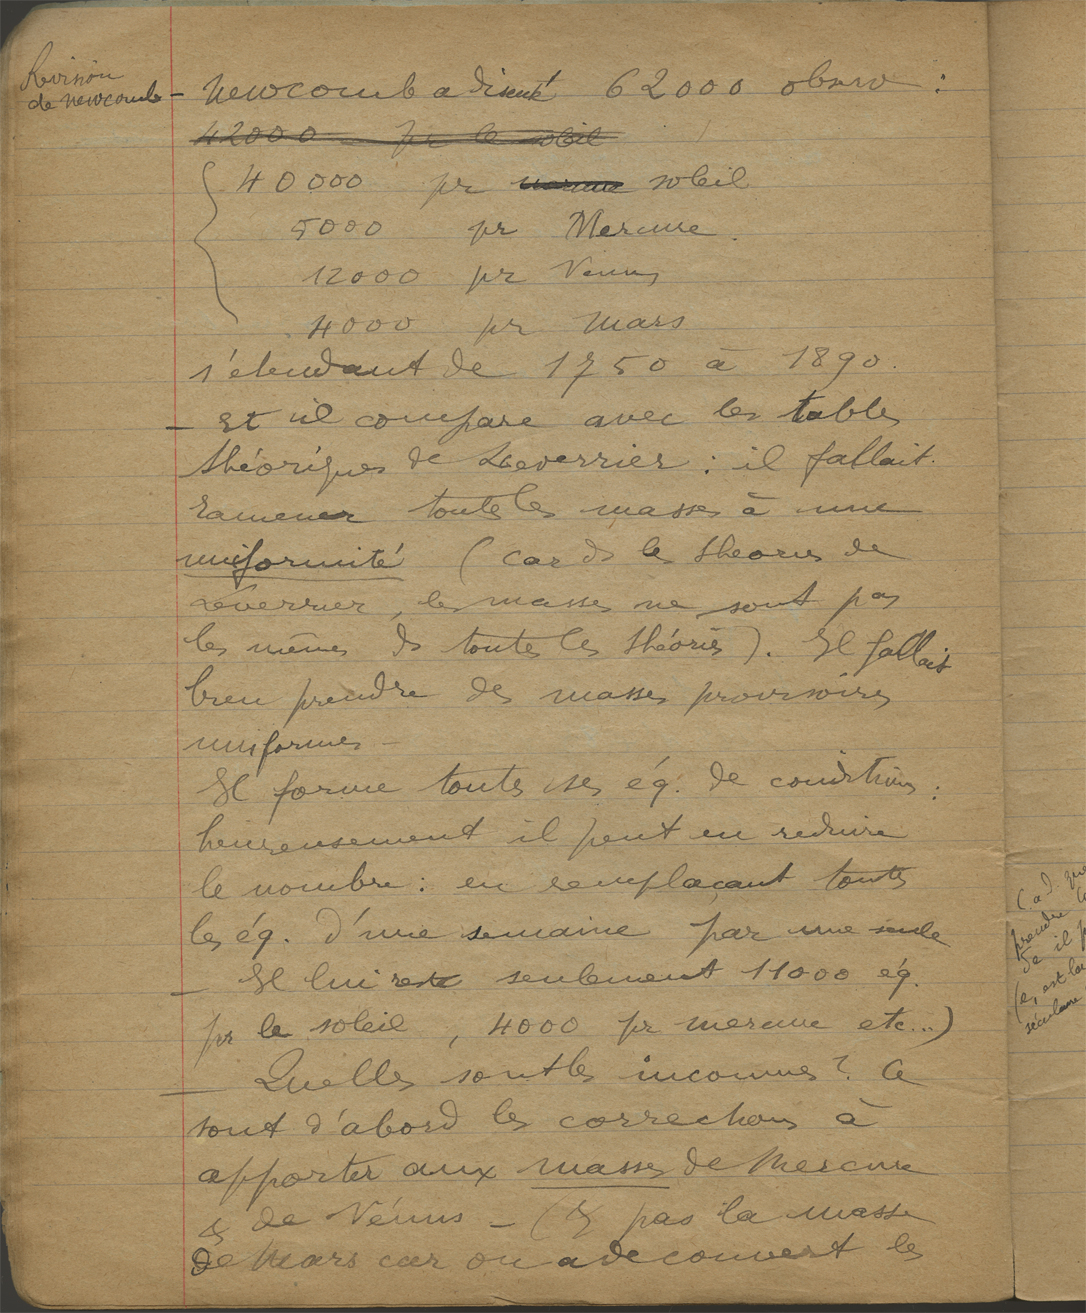 Revision
de Newcomb
- Newcomb a discuté 62000 observ :
42000 pr le soleil
40000 pr soleil
5000 pr Mercure.
12000 pr Vénus
4000 pr Mars
s'étendant de 1750 à 1890.
- Et il compare avec les tables
théoriques de Leverrier : il fallait
ramener toutes les masses à une
uniformité (car ds les théories de
Leverrier, les masses ne sont pas
les mêmes ds toutes les théories). Il fallait
bien prendre des masses provisoires
uniformes -
Il forme toutes ses éq. de conditions :
heureusement il peut en réduire
le nombre : en remplaçant toutes
les éq. d'une semaine par une seule
- Il lui reste seulement 11000 éq.
pr le soleil, 4000 pr mercure etc...)
- Quelles sont les inconnues ? Ce
sont d'abord les corrections à
apporter aux masses de Mercure
& de Vénus - (& pas la masse
de Mars car on a découvert les
c. à d. que
prendre
de il
(e, est la
séculaire